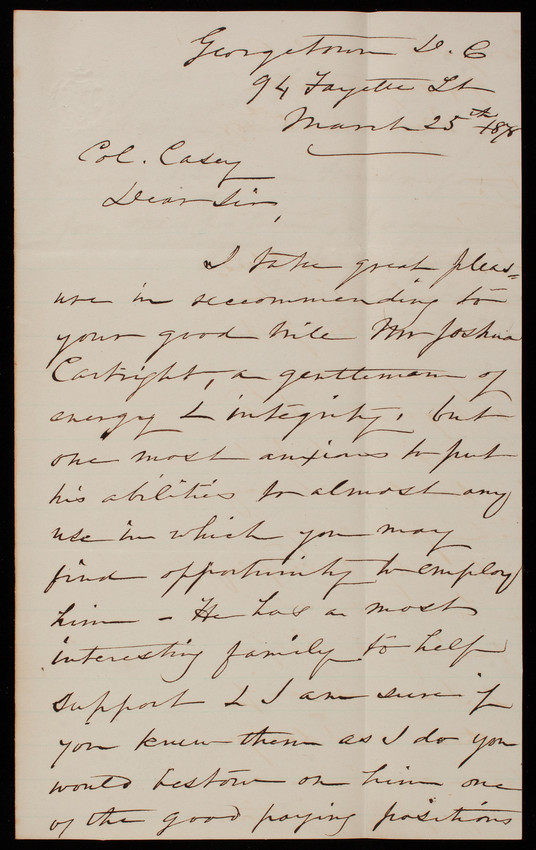 Georgetown D. C
94 Fayette St
March 25th 1878
Col. Casey
Dear Sir,
I take great pleas=
ure in reccommending to
your good will Mr Joshua
Cartright, a gentleman of
energy & integrity, but
one most anxious to put
his abilities to almost any
use in which you may
find opportunity to employ
him - He has a most
interesting family to help
support & I am sure if
you knew them as I do you
would bestow on him one
of the good paying positions